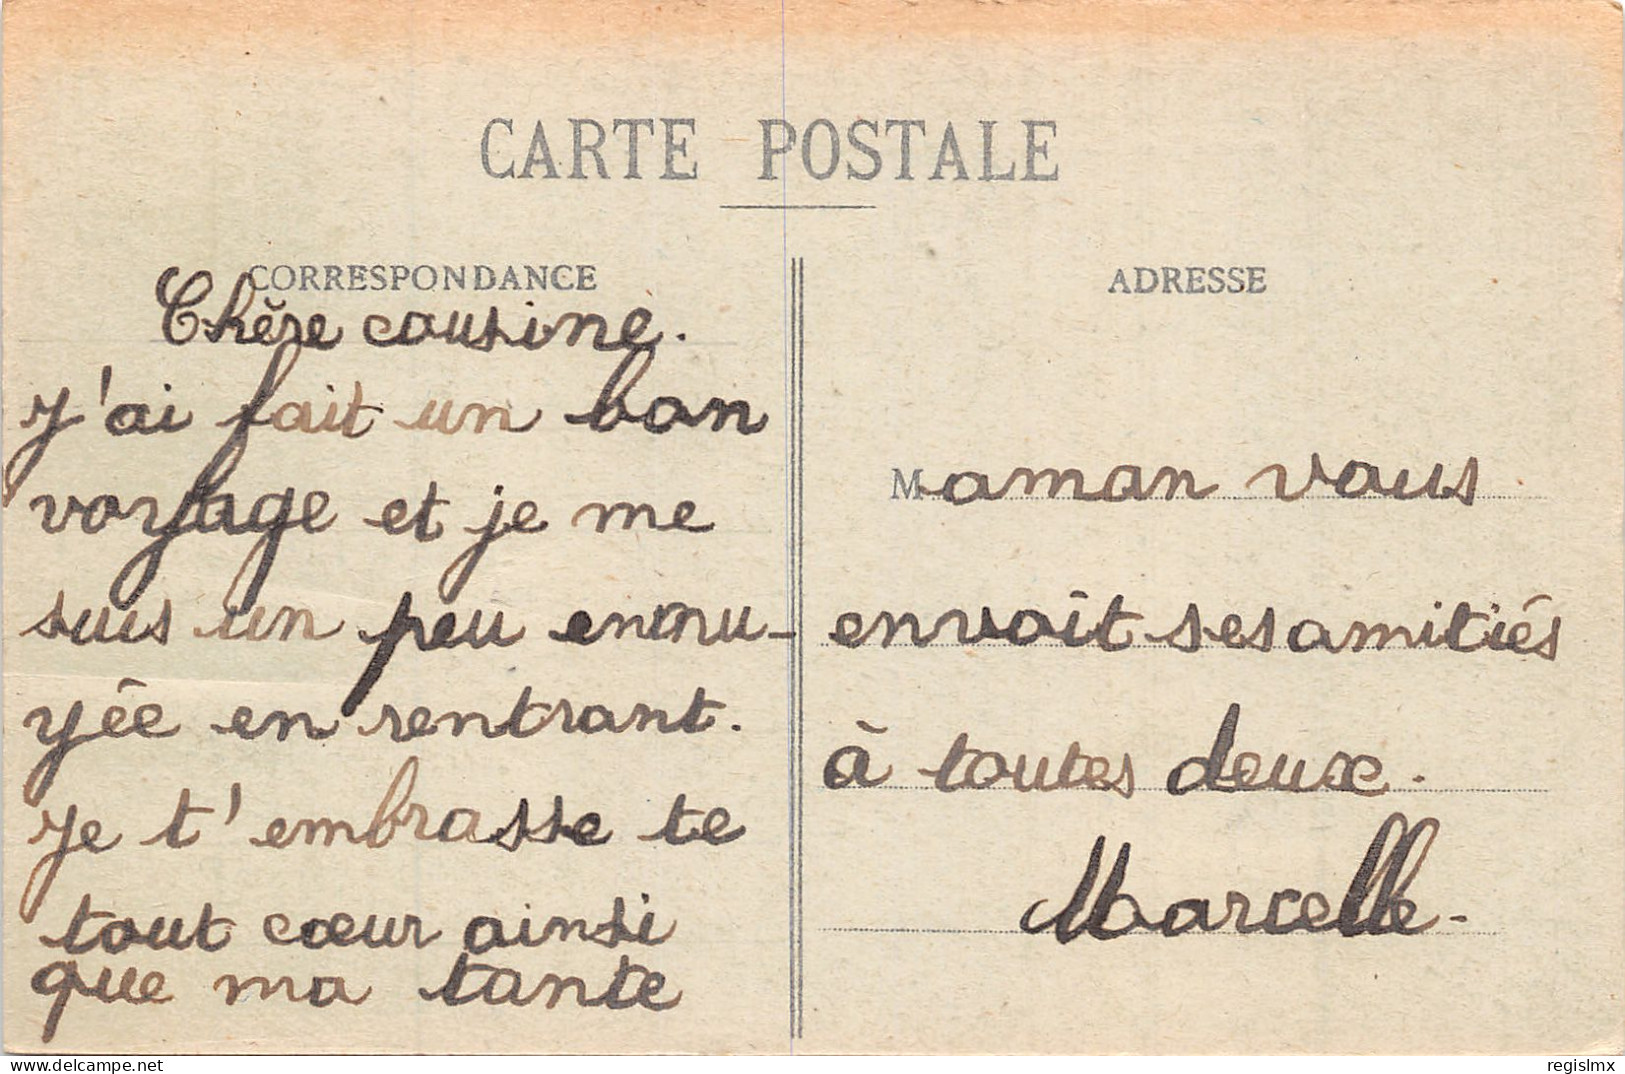 CARTE POSTALE
CORRESPONDANCE
Chère cousine.
J'ai fait un bon
voyage et je me
suis un peu ennu-
yée en rentrant.
Je t'embrasse te
tout cœur ainsi
que ma tante
ADRESSE
Maman vous
envoit ses amitiés
à toutes deux.
Marcelle.
www.delcampe.net
regislmx